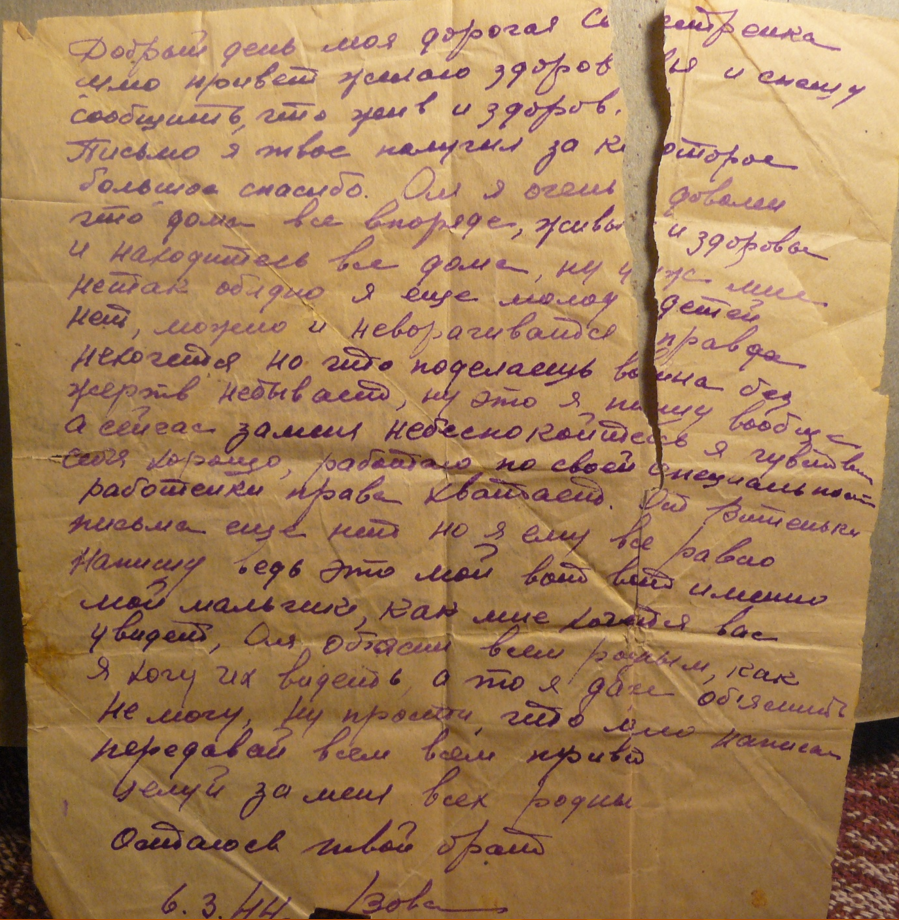 Добрый день моя дорогая Сестренка
шлю привет желаю здоровья и спешу
сообщить, что жив и здоров.
Письмо я твое получил за которое
большое спасибо. Оля я очень доволен
что дома все впоряде, живы и здоровы
и находитесь все дома, ну уж мне
нетак обидно я еще молод детей
нет, можно и неворачиватся правда
нехочется но что поделаешь война без
жертв небывает, ну это я пишу вообще
а сейчас заменя небеспокойтесь я чувствую
себя хорошо, работаю по своей специальност
работенки права хватает. От Витеньки
письма еще нет но я ему все равно
напишу ведь это мой вот вот именно
мой мальчик, как мне хочется вас
увидеть, Оля обясни всем родным, как
я хочу их видеть, а то я даж обяснить
не могу, ну прости, что мало написал
передавай всем всем привет
целуй за меня всех родны
Остаюсь твой брат
6.3.44. Вова